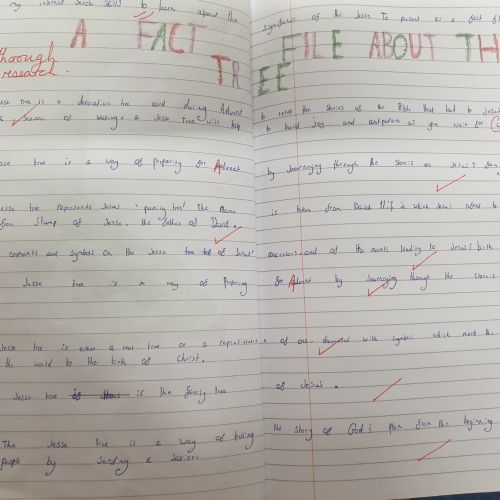 my internet search skills to learn about the significance of the Jesse Tree posed as a fact file
A FACT FILE ABOUT TH
TREE
through
research.
sse tree is a decorative tree used during Advent to retell the stories of the Bible that lead to Jesus
a season of waiting. a Jesse Tree will help to build joy and as you wait for
sse tree is a way of preparing for Advent by Journeying through the stories on Jesus's fam
esse tree represents Jesus' The name is taken from Isaiah 11:1 in which Jesus
from Stump of Jesse. the father of David.
ornaments and symbols on the Jesse tree tell of Jesus' ancestors and of the events leading to Jesus's birth
Jesse tree is a way of preparing for Advent by Journeying through the stories
Jesse tree is either a real tree or a of one, with symbols which mark the
the world to the birth of Christ.
Jesse tree is the family tree of Jesus.
The Jesse tree is a way of telling the story of God's plan from the beginning
people by sending a saviour